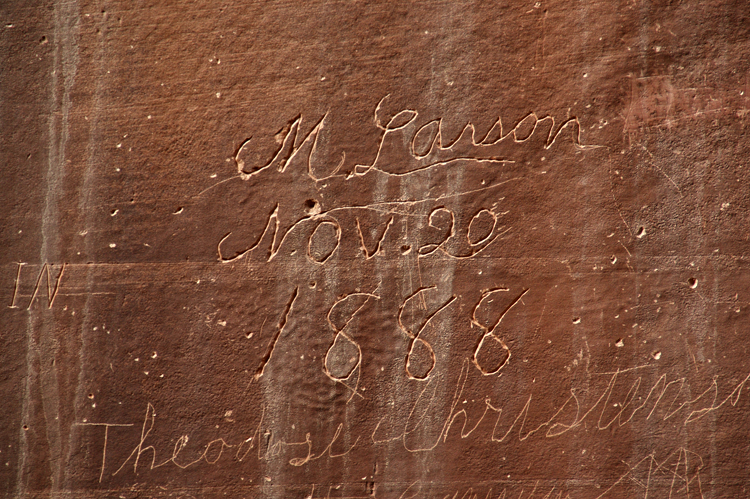 M Larson
Nov. 20
1888
IN
Theodose Christenson